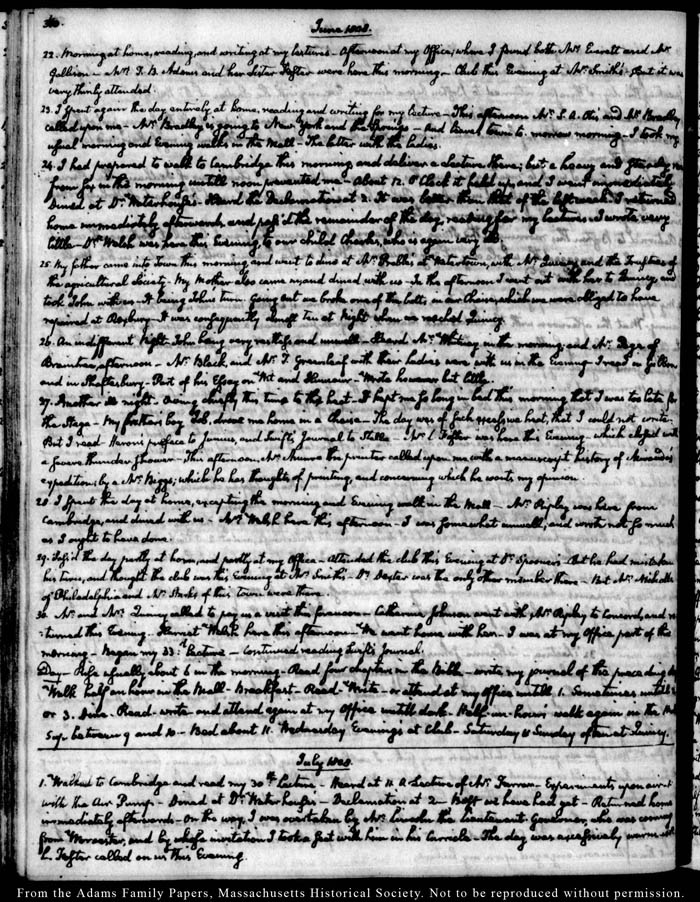 June 1808.
22. Morning at home, reading and writing at my lectures - Afternoon at my Office; where I found both Mr. Everett and Mr.
Gallison - Mrs. T. B. Adams and her Sister Foster were here this morning - Club this Evening at Mr. Smith's - But it was
very thinly attended.
23. I spent again the day entirely at home, reading and writing for my lecture - This afternoon Mr. S. A. Otis and Mr. Bradley
called upon me - Mr. Bradley is going to New York and the Springs - And leaves town to-morrow morning - I took my
usual morning and Evening walks in the Mall - The latter with the ladies.
24. I had prepared to walk to Cambridge this morning and deliver a lecture there; but a heavy and steady
from in the morning untill noon prevented me - About 12. O'Clock it held up, and I went immediately
Dined at Dr. Waterhouse's - Heard the Declamations at 2. It was better than that of the last week. I returned
home immediately afterwards and pass'd the remainder of the day, reading for my lectures. I wrote very
little - Dr. Welsh was here this Evening, to our child Charles, who is again very ill.
25. My father came into Town this morning and went to dine at Mr. Preble's at Watertown, with Mr. Quincy and the trustees of
the agricultural Society - My Mother also came in, and dined with us - In the afternoon I went out with her to Quincy, and
took John with us - It being John's turn. Going out we broke one of the bolts, in our Chaise, which we were obliged to have
repaired at Roxbury. It was consequently almost ten at Night when we reached Quincy.
26. An indifferent Night - John being very restless and unwell - Heard Mr. Whitney in the morning, and Mr. Page of
Braintree, afternoon - Mr. Black and Mr. T. Greenleaf with their ladies were with us in the Evening - I read in
and in Shaftesbury - Part of his Essay on Wit and Humour - Wrote however but little.
27. Another ill night - Owing chiefly this time to the heat - It kept me so long in bed this morning that I was too late for
the Stage - My father's boy drove me home in a Chaise - The day was of such excessive heat, that I could not write
But I read - Heron's preface to Junius, and Swift's Journal to Stella - Mrs. Foster was here this Evening - which closed with
a severe thunder shower - This afternoon Mr. Munroe the printer called upon me with a manuscript history of Miranda's
expedition; by a Mr. Biggs; which he has thoughts of printing, and concerning which he wants my opinion.
28. I spent the day at home, excepting the morning and Evening walk in the Mall - Mr. Ripley was here from
Cambridge, and dined with us - Mrs. Welsh here this afternoon - I was somewhat unwell, and wrote not so much
as I ought to have done.
29. Pass'd the day partly at home, and partly at my Office - Attended the club this Evening at Dr. Spooner's - But he had mistaken
his time, and thought the club was this Evening at Mr. Smith's - Dr. Dexter was the only other member there - But Mr. Nicholls
of Philadelphia and Mr. Sparks of this town were there.
30. Mr. and Mrs. Quincy called to pay us a visit this forenoon - Catherine Johnson went with Mr. Ripley to Concord, and re-
-turned this Evening. Harriet Welsh here this afternoon - We went home with her - I was at my Office part of the
morning - Began my 33: Lecture - Continued reading Swift's Journal.
Day. Rise usually about 6 in the morning - Read four chapters in the Bible - write my journal of the preceding day
Walk half an hour in the Mall - Breakfast - Read - Write - or attend at my office untill 1. Sometimes untill 2
or 3. Dine - Read - write and attend again at my Office untill dark - Half-an-hour's walk again in the Mall
Sup. between 9 and 10 - Bed about 11. Wednesday Evenings at Club - Saturday & Sunday often at Quincy.
July 1808.
1. Walked to Cambridge and read my 30th Lecture - Heard at 11. A Lecture of Mr. Farrar - Experiments upon air
with the Air Pump - Dined at Dr. Waterhouse's - Declamation at 2 - Best we have had yet - Returned home
immediately afterwards - On the way, I was overtaken by Mr. Lincoln the Lieutenant Governor, who was coming
from Worcester, and by whose invitation I took a seat with him in his Curricle - The day was excessively warm
L. Foster called on us this Evening.
From the Adams Family Papers, Massachusetts Historical Society. Not to be reproduced without permission.